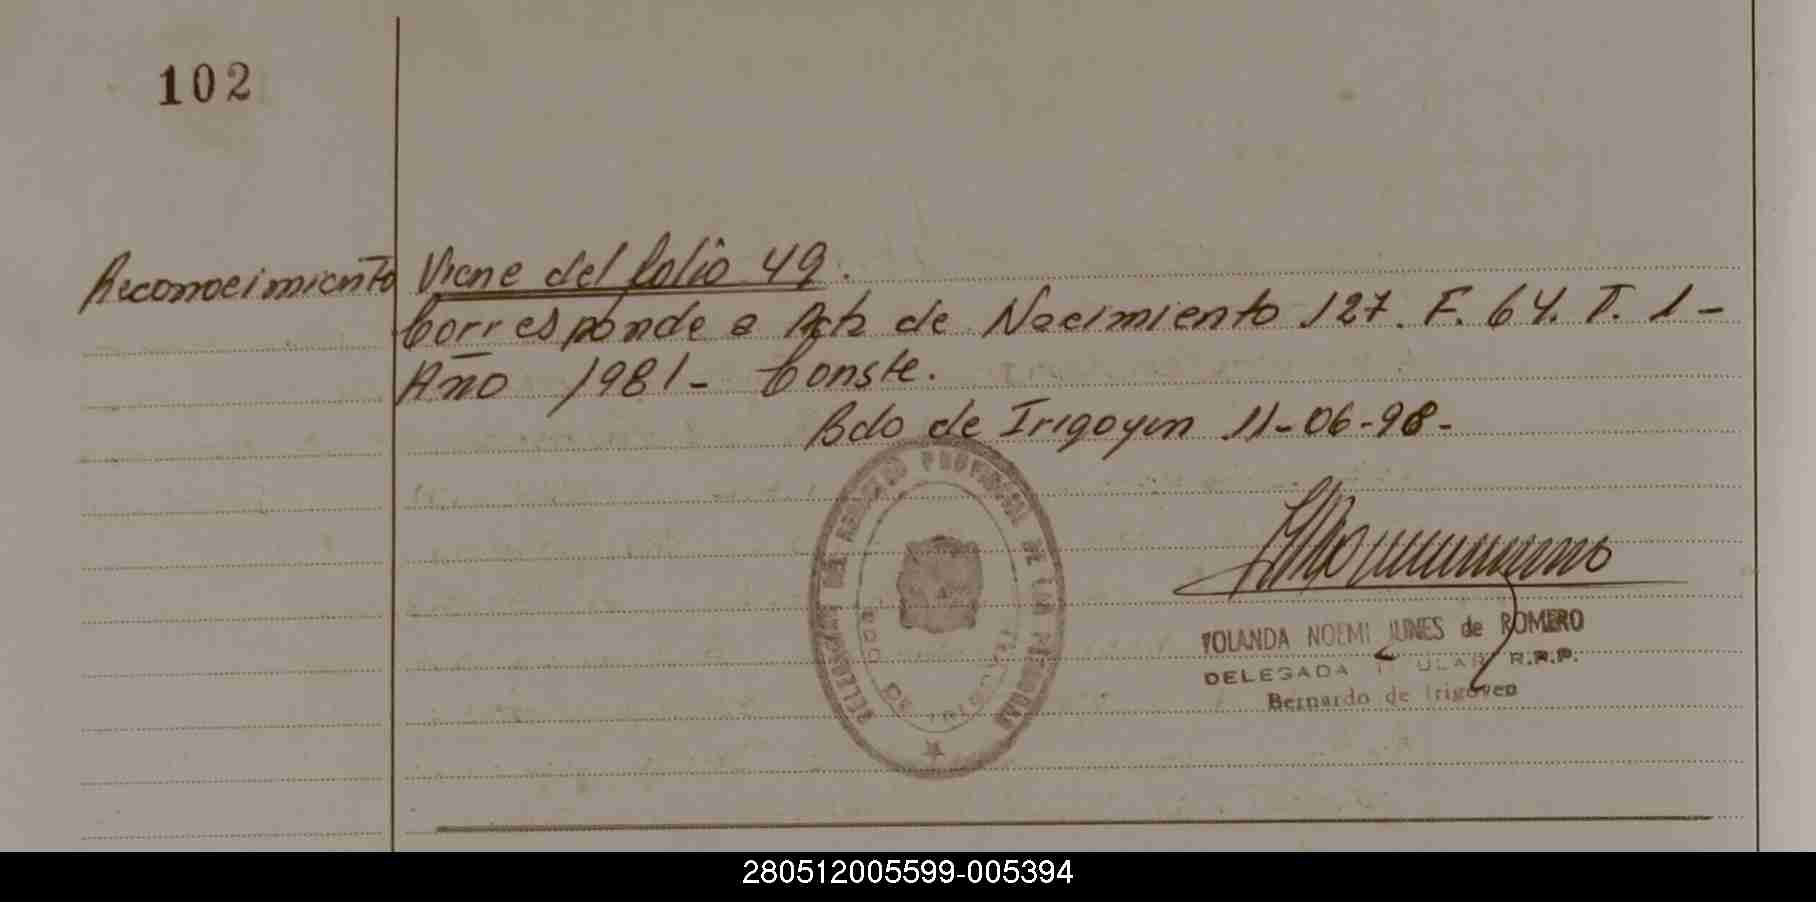 102
Reconocimiento
Viene del folio 49.
Corresponde a Acta de Nacimiento 127. F. 64. T. 1-
Año 1981- Conste.
Bdo de Irigoyen 11-06-98-
DELEGACION DEL REGISTRO PROVINCIAL DE LA PERSONAS
BDO DE IRIGOYEN
YOLANDA NOEMI JUNES de ROMERO
DELEGADA TITULAR R.P.P.
Bernardo de Irigoyen
280512005599-005394